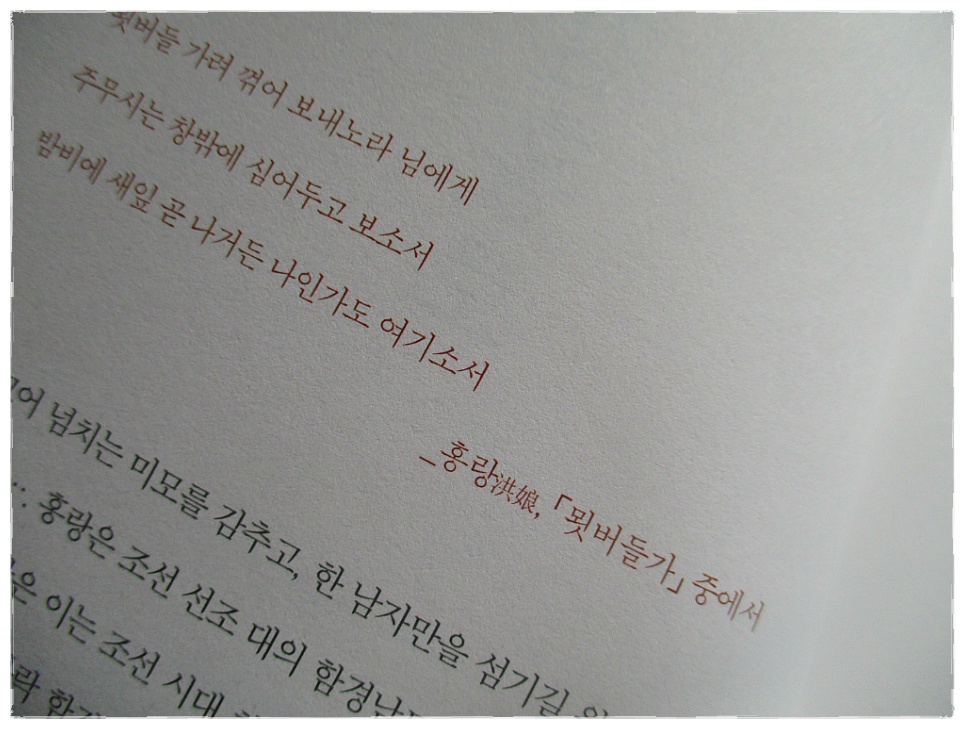 묏버들 가려 꺾어 보내노라 님에게
주무시는 창밖에 심어두고 보소서
밤비에 새잎 곧 나거든 나인가도 여기소서
_홍랑洪娘, 「묏버들가」 중에서
넘치는 미모를 감추고, 한 남자만을 섬기길
홍랑은 조선 선조 대의
이는 조선 시대